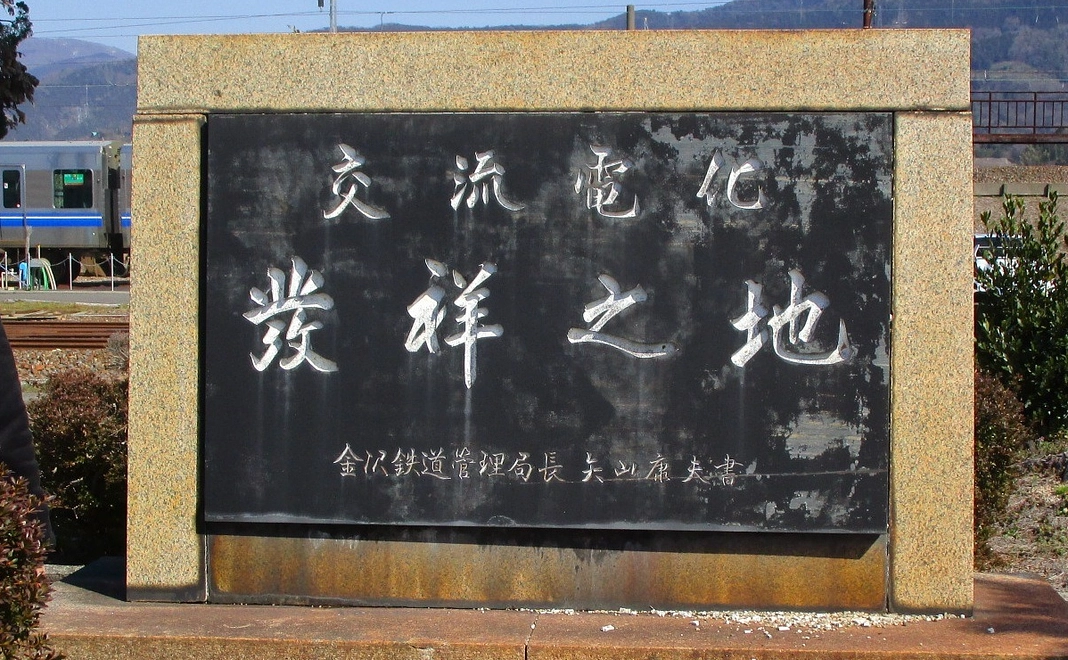 交流電化
發祥之地
金沢鉄道管理局長 矢山康夫書